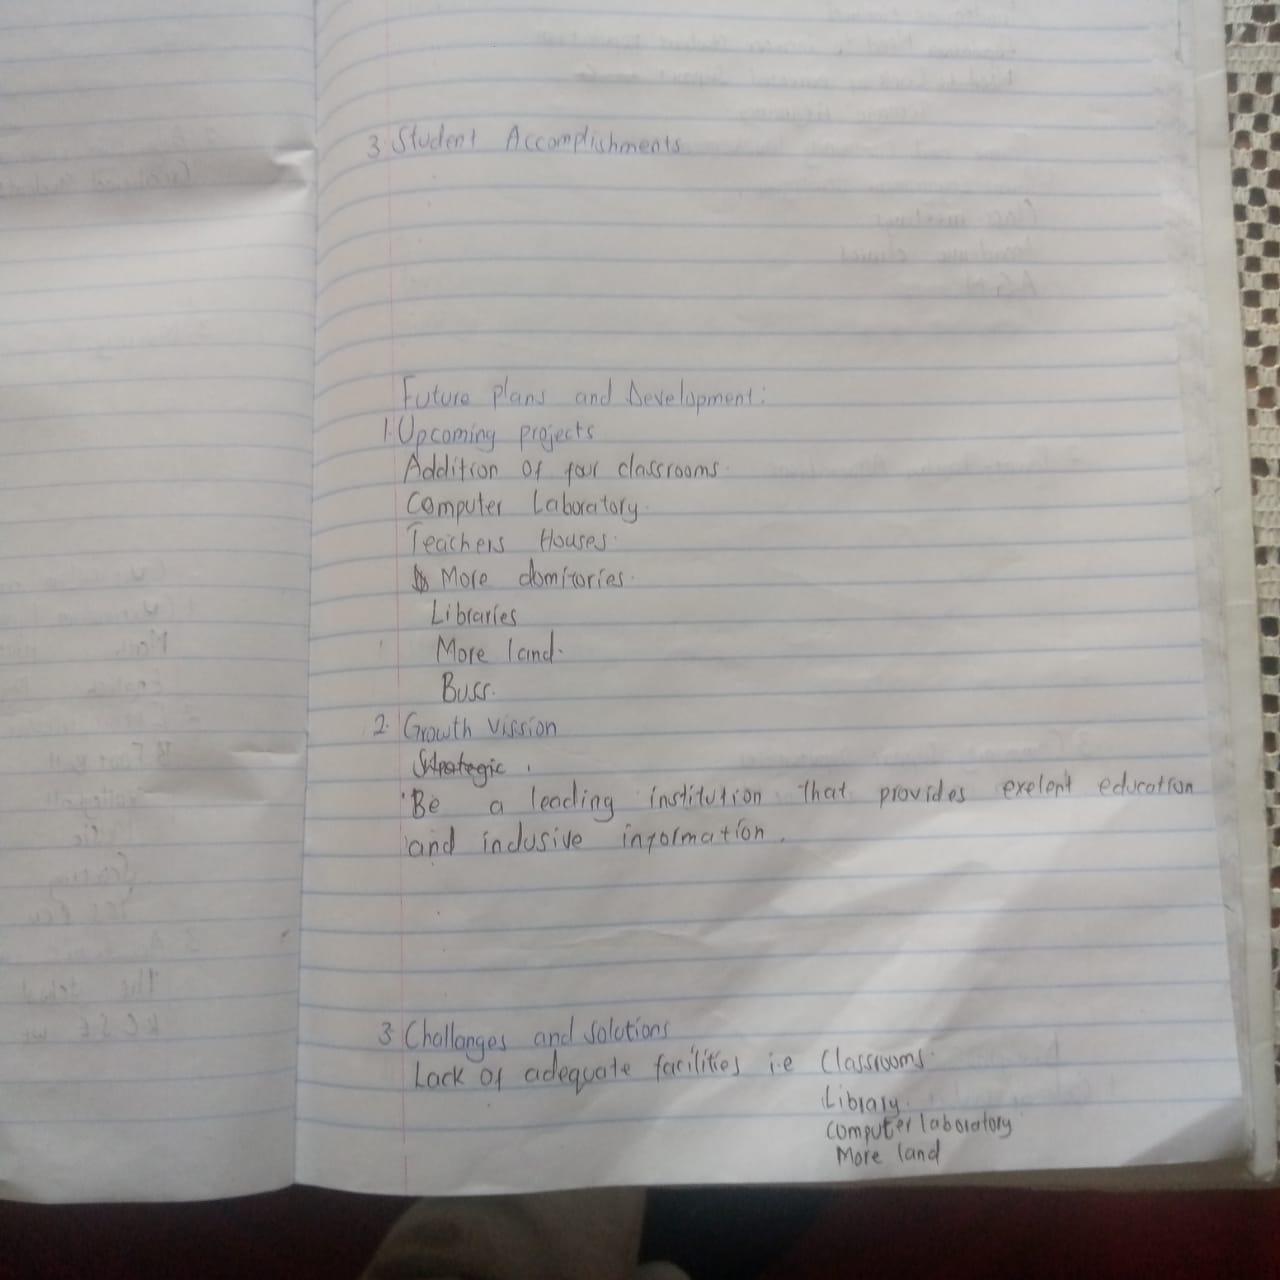 3 Student Accomplishments
Future plans and Development:
1. Upcoming projects
Addition of four classrooms.
Computer Laboratory.
Teachers Houses.
More domitories.
Libraries
More land.
Buss.
2. Growth vission
Strategic.
Be a leading institution that provides exelent education
and inclusive information.
3 Challanges and solutions
Lack of adequate facilities i.e Classrooms.
Library.
computer laboratory
More land